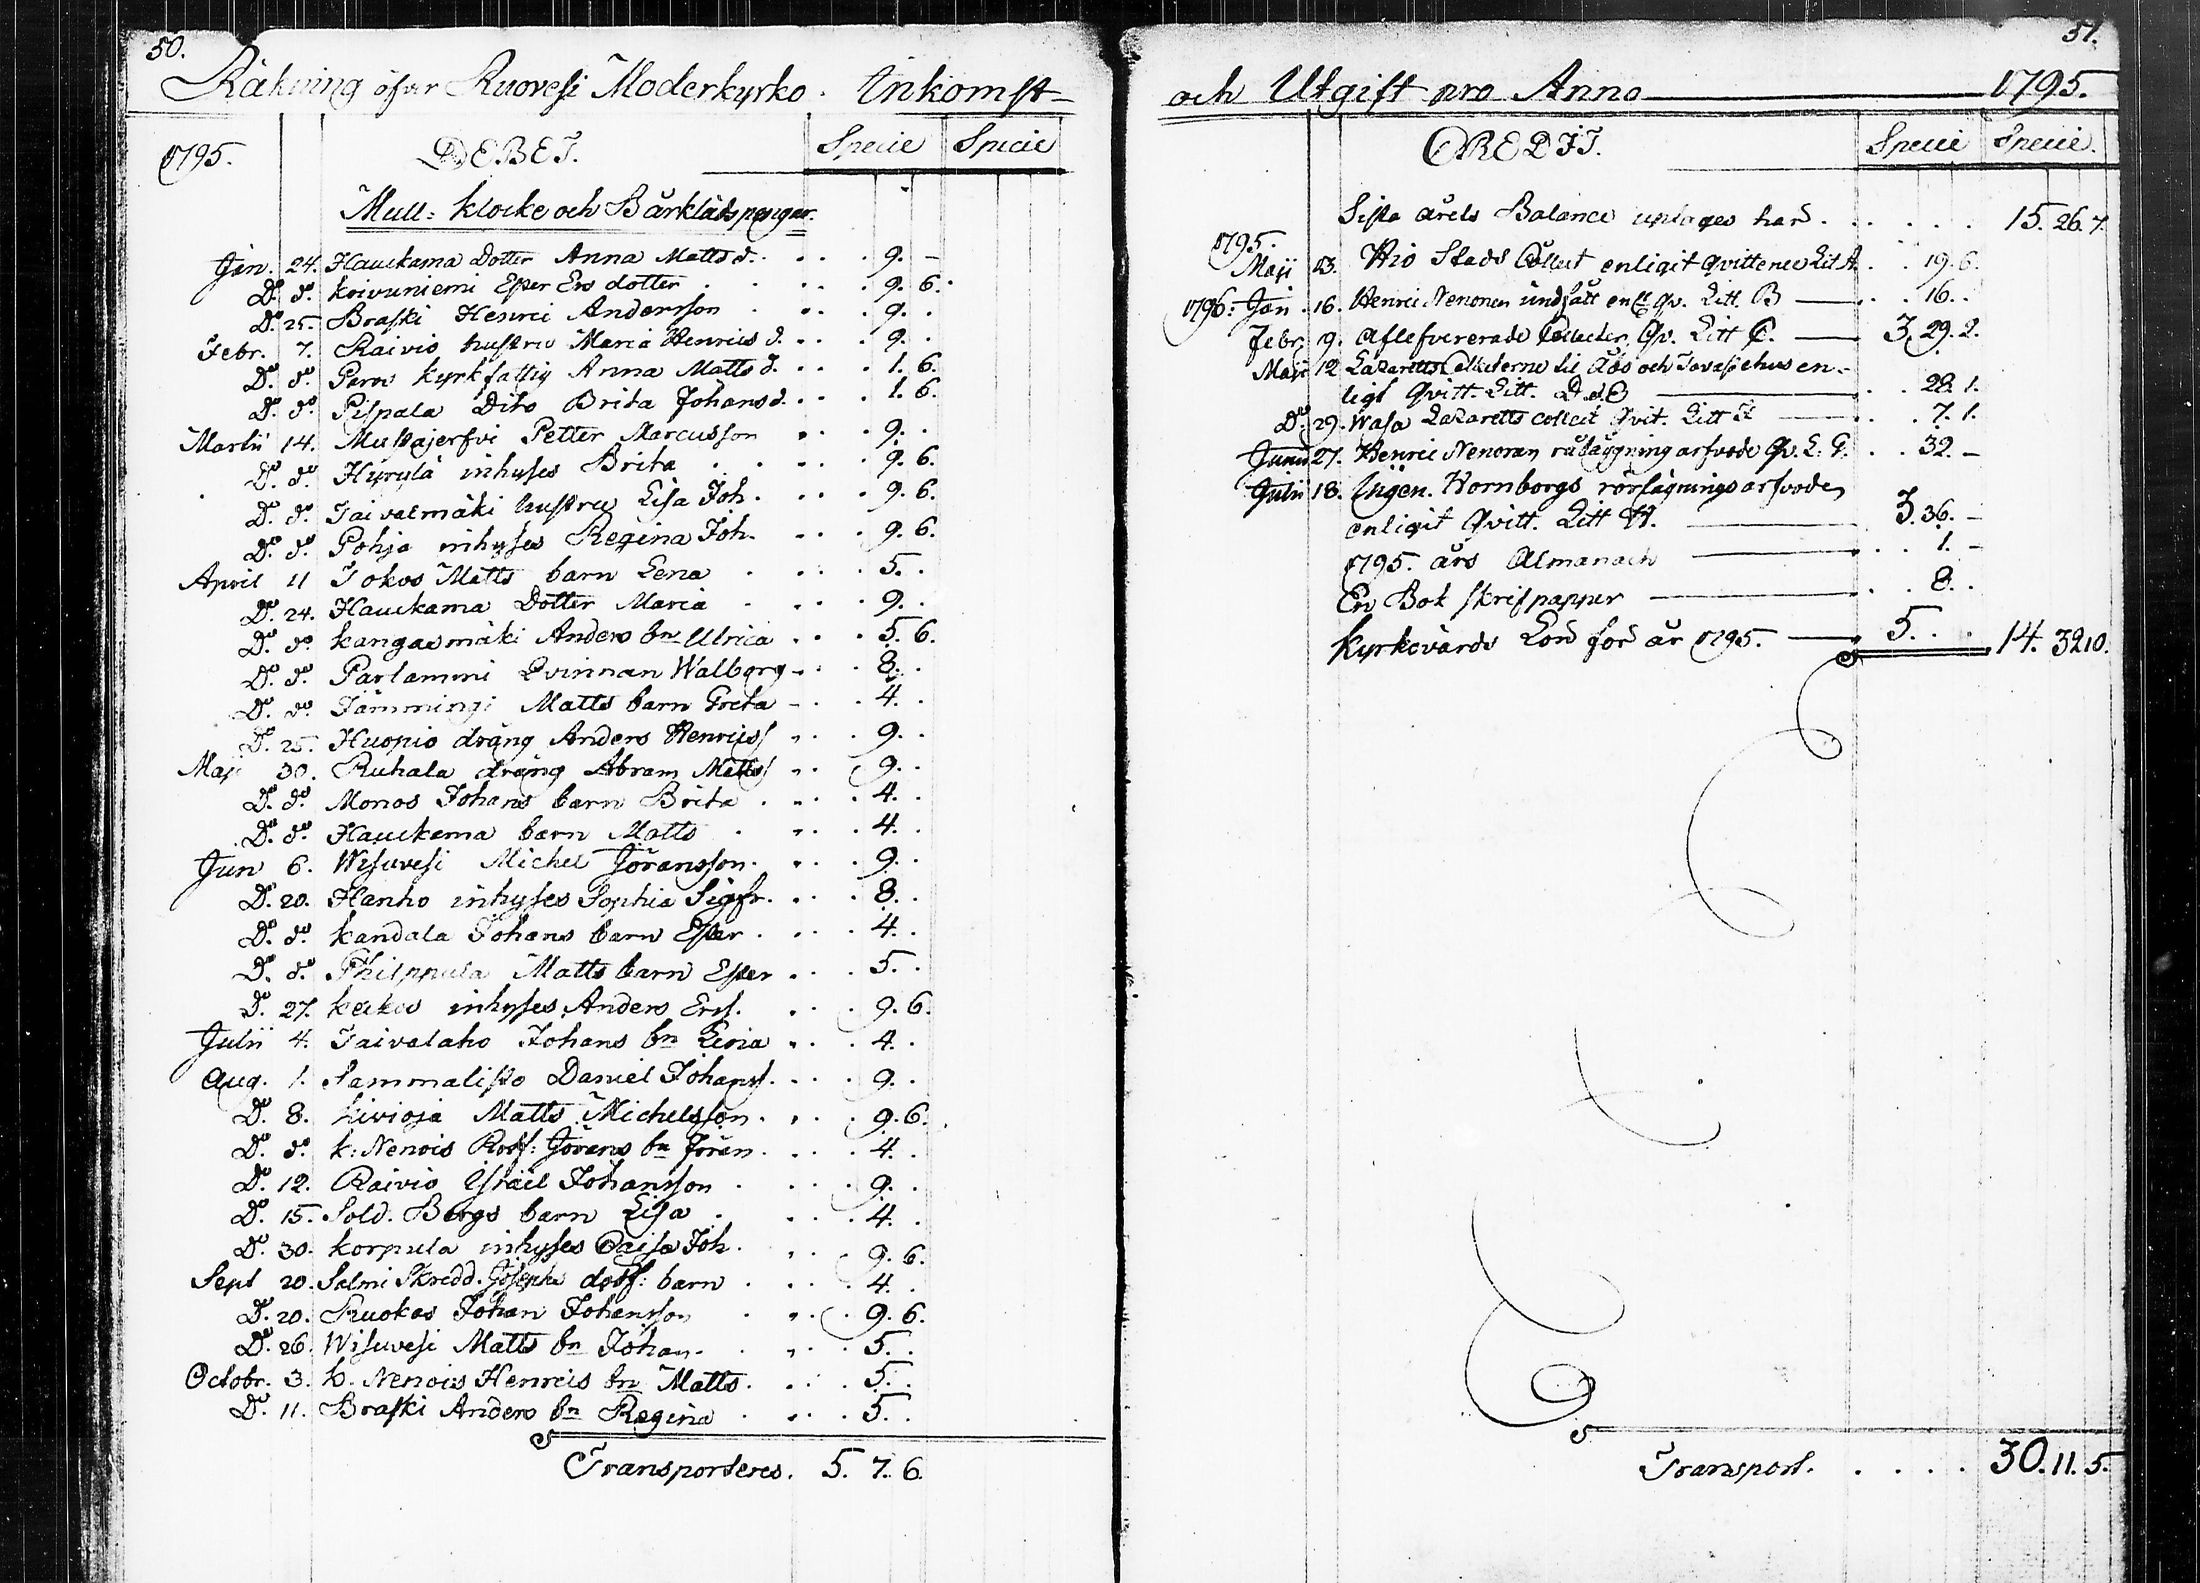 50.
Räkning öfver Ruovesi Moderkyrko Inkomst
1795. DEBET. Specie Specie
Mull= klocke och Bårklädspengar.
Jan. 24. Hauckama Dotter Anna Matts d. 9. –
Do. do. koivuniemi Ester Ers dotter 9. 6.
Do. 25. Braski Henric Andersson 9.
Febr. 7. Raivio hustru Maria Henrics d. 9.
Do. do. kyrkfattig Anna Matts d. 1. 6.
Do. do. Pispala Dito Brita Johans d. 1. 6.
Martii 14. Mustajerfvi Petter Marcusson 9.
Do. do. Hyrylä inhyses Brita 9. 6.
Do. do. Taivalmäki hustru Lisa Joh. 9. 6.
Do. do. Pohja inhyses Regina Joh. 9. 6.
April 11 Jokos Matts barn Lena 5.
Do. 24. Hauckama Dotter Maria 9.
Do. do. kangasmäki Anders bn Ulrica 5. 6.
Do. do. Parlammi Qvinnan Walborg 8.
Do. do. Jämmingi Matts barn Greta 4.
Do. 25. Huopio dräng Anders Henricss 9.
Maji 30. Ruhala dräng Abram Mattss 9.
Do. do. Monos Johans barn Brita 4.
Do. do. Hauckama barn Matts 4.
Jun 6. Wisuvesi Michel Jöransson 9.
Do. 20. Hanho inhyses Sophia Sigfr. 8.
Do. do. kandala Johans barn Ester 4.
Do. do. Philppula Matts barn Ester 5.
Do. 27. inhyses Anders Ers. 9. 6.
Julii 4. Taivalaho Johans bn 4.
Aug. 1. Sammalisto Daniel Johanss. 9.
Do. 8. kivioja Matts Michelsson 9. 6.
Do. do. k: Nenois Jörans bn Jöran 4.
Do. 12. Raivio Israel Johansson 9.
Do. 15. Sold. Bergs barn Lisa 4.
Do. 30. korpula inhyses Caisa Joh. 9. 6.
Sept 20. Salmi Skredd. Josephs barn 4.
Do. 20. Ruokas Johan Johansson 9. 6.
Do. 26. Wisuvesi Matts bn Johan 5.
Octobr. 3. k. Nenois Henrics bn Matts 5.
Do. 11. Braski Anders bn Regina 5.
Transporteres. 5. 7. 6.
51.
och Utgift pro Anno 1795.
CREDIT. Specie Specie.
Sista årets Balance uptages här 15. 26. 7.
1795.
Maji 13. Stads Collect enligit Qvittence Lit A. 19. 6.
1796: Jan. 16. Henric Nenonen undfått enl. Qv. Litt. B 16.
Febr. 9. Aflefvererade Collecter Qv. Litt C. 3. 29. 2.
Maji 12 Lazaretts Collecterne til Åbo och Tavastehus en-
ligt Qvitt. Litt. D et E 28. 1.
Do. 29. Wasa Lazaretts collect Qvit. Litt F 7. 1.
Junii 27. Henric Nenonen arfvode Qv. L. G. 32. –
Julii 18. Ingen. Hornborgs arfvode
enligit Qvitt. Litt H. 3. 36. –
1795. års Almanach 1. –
En Bok skrifpapper 8.
kyrkovärds Lön för år 1795. 5. 14. 32 10.
Transport. 30. 11. 5.